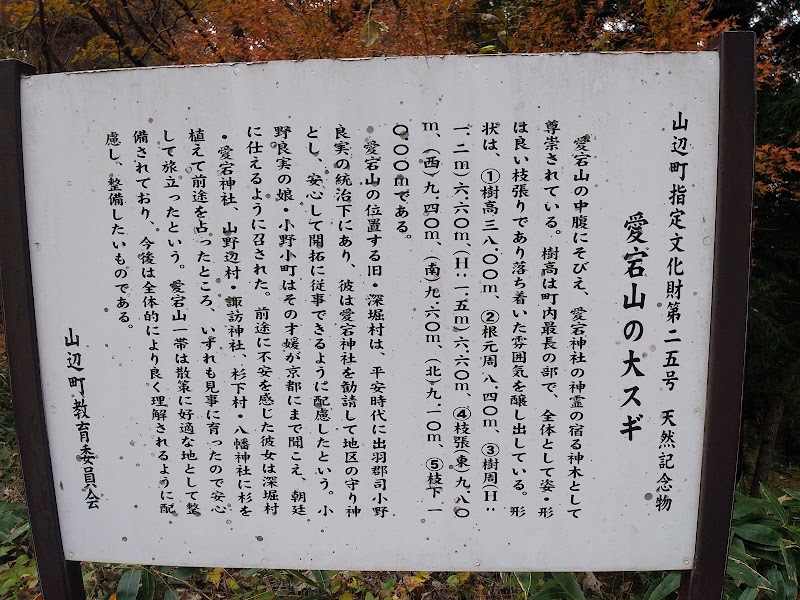 山辺町指定文化財第二五号　天然記念物
愛宕山の大スギ
愛宕山の中腹にそびえ、愛宕神社の神霊の宿る神木として
尊崇されている。樹高は町内最長の部で、全体として姿・形
は良い枝張りであり落ち着いた雰囲気を醸し出している。形
状は、①樹高三八.〇〇m、②根元周八.四〇m、③樹周(H：
一.二m)六.六〇m、(H：一.五m)六.六〇m、④枝張(東)九.八〇
m、(西)九.四〇m、(南)九.六〇m、(北)九.一〇m、⑤枝下一
〇.〇〇mである。
・愛宕山の位置する旧・深堀村は、平安時代に出羽郡司小野
良実の統治下にあり、彼は愛宕神社を勧請して地区の守り神
とし、安心して開拓に従事できるように配慮したという。小
野良実の娘・小野小町はその才媛が京都にまで聞こえ、朝廷
に仕えるように召された。前途に不安を感じた彼女は深堀村
・愛宕神社、山野辺村・諏訪神社、杉下村・八幡神社に杉を
植えて前途を占ったところ、いずれも見事に育ったので安心
して旅立ったという。愛宕山一帯は散策に好適な地として整
備されており、今後は全体的により良く理解されるように配
慮し、整備したいものである。
山辺町教育委員会